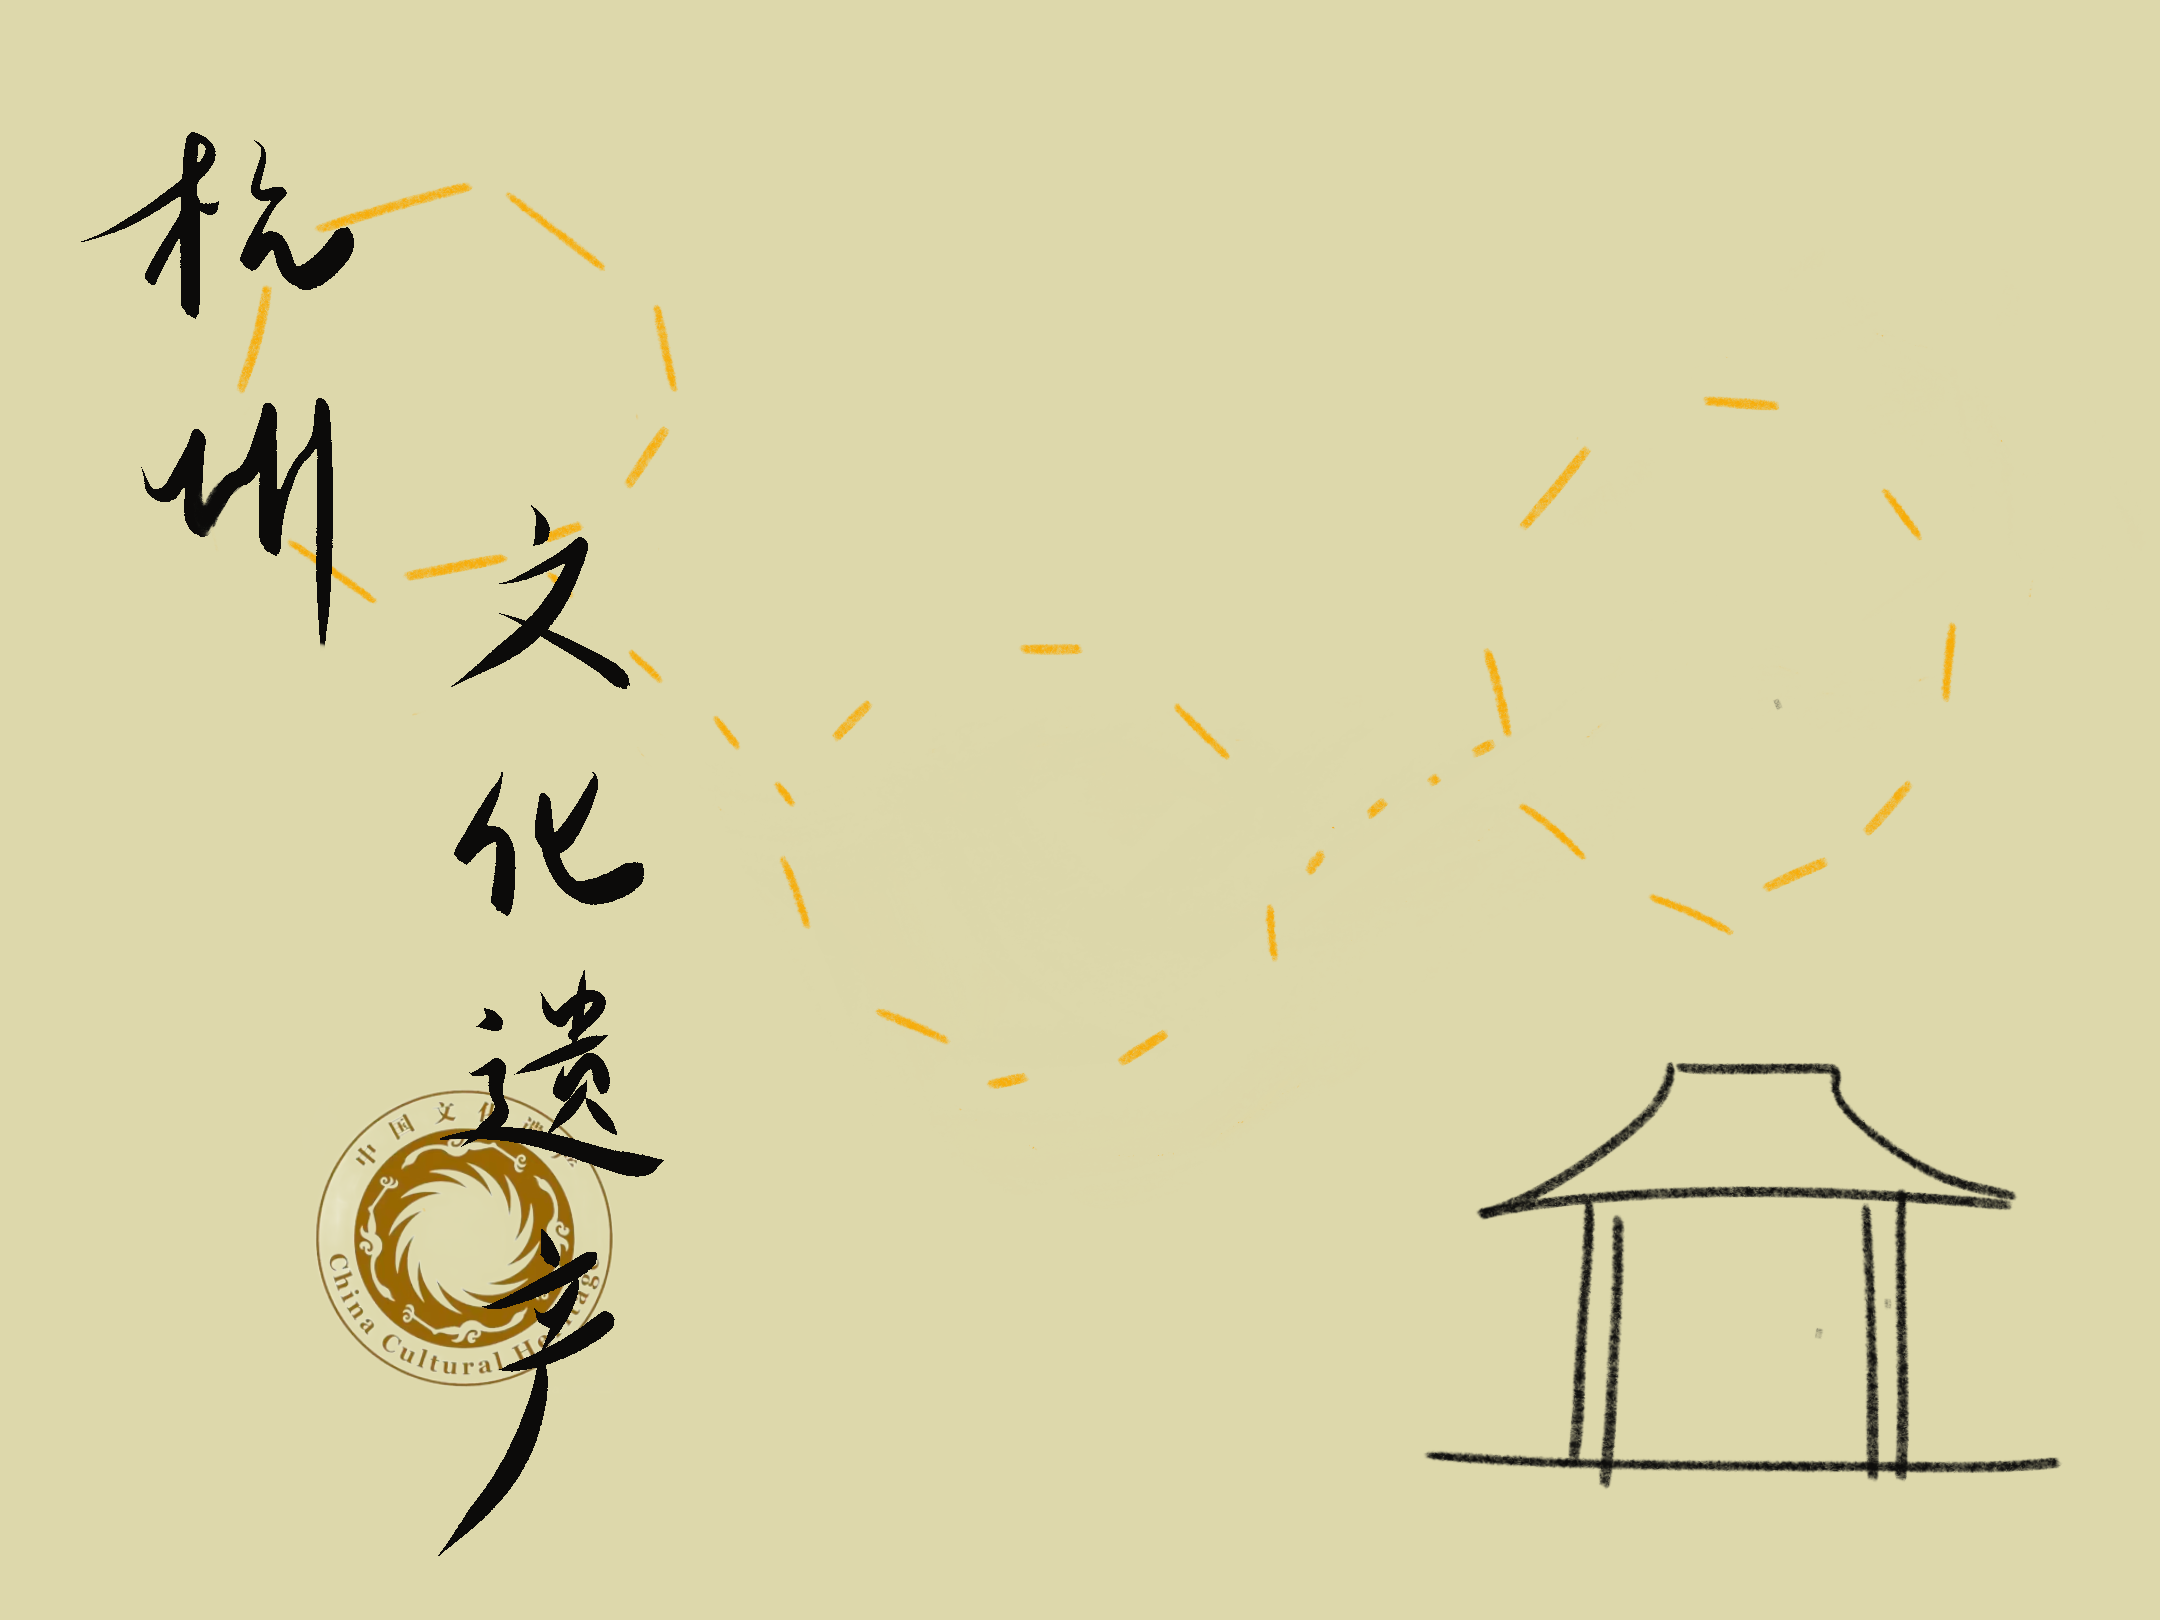 杭州
文化遗产
中国文化遗产
China Cultural Heritage